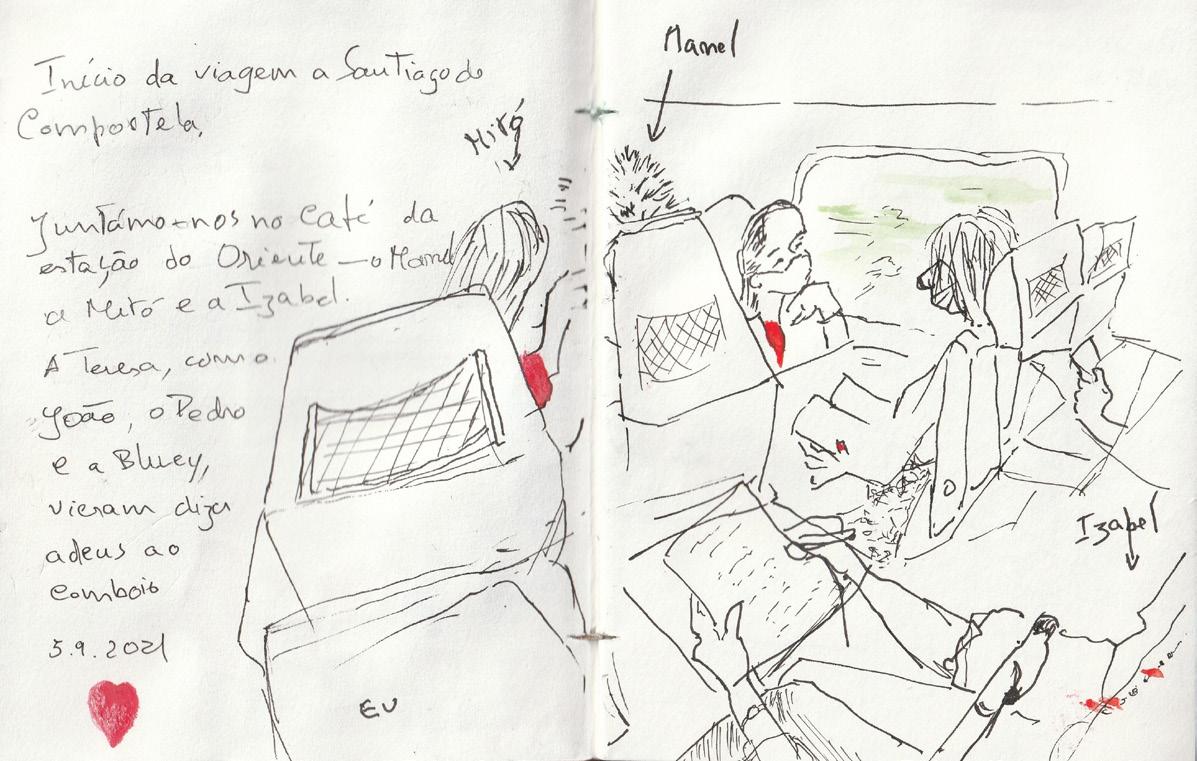 Início da viagem a Santiago de
Compostela,
Miró
Juntámo-nos no Café da
estação do Oriente — o Manel
a Miró e a Izabel.
A Teresa, com o
João, o Pedro
e a Bluey,
vieram dizer
adeus ao
comboio
5.9.2021
EU
Manel
Izabel